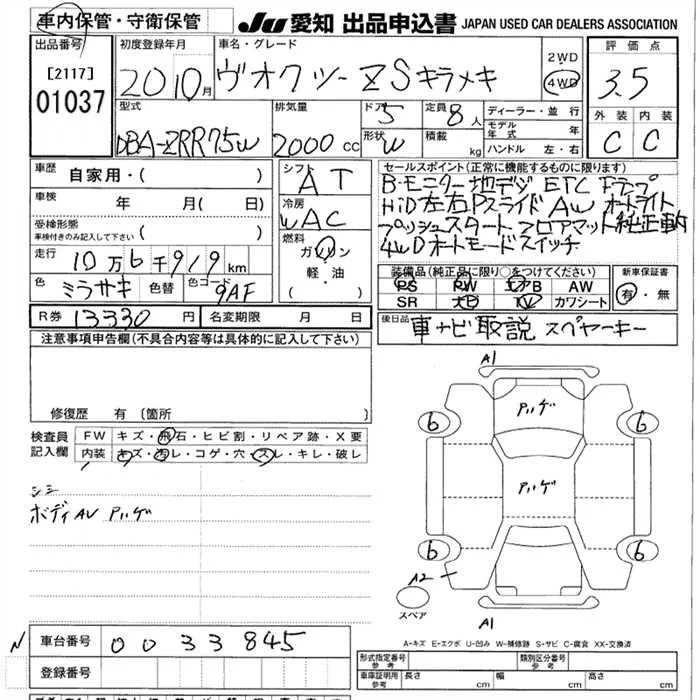 車内保管・守衛保管
JU 愛知 出品申込書 JAPAN USED CAR DEALERS ASSOCIATION
出品番号
[2117]
01037
初度登録年月
20 10月
車名・グレード
ヴオクツー ZSキラメキ
2WD
4WD
評価点
3.5
外装 内装
C C
型式
DBA-ZRR75W
排気量
2000 cc
ドア 5
形状 W
定員 8 人
積載 kg
ディーラー・並行
モデル年式 年
ハンドル 左・右
車歴 自家用・( )
車検 年 月( 日)
受検形態
車検付きのみ記入して下さい ( )
走行 10万6千919km
色 ミラサキ 色替 色コード 9AF
シフト AT
冷房 WAC
燃料
ガソリン
軽・油
( )
セールスポイント(正常に機能するものに限ります)
B・モニター 地デジ ETC Fランプ
HiD 左右Pスライド AW オートライト
プッシュスタート フロアマット 純正車内
4WDオートモードスイッチ
装備品(純正品に限り○をつけてください)
PS PW エアB AW
SR ナビ TV カワシート
新車保証書
有・無
R券 13330 円 名変期限 月 日
後日品 車ナビ取説 スペヤーキー
注意事項申告欄(不具合内容等は具体的に記入して下さい)
修復歴 有 〔箇所 〕
検査員記入欄
FW キズ・飛石・ヒビ割・リペア跡・X要
内装 キズ・汚レ・コゲ・穴・スレ・キレ・破レ
シミ
ボディAU アルゲ
A1
アルゲ
6 6
アルゲ
6 6
A2
スペア
A1
A-キズ E-エクボ U-凹み W-補修跡 S-サビ C-腐食 XX-交換済
N
車台番号 0033845
登録番号
形式指定番号 参考
類別区分番号 参考
車庫証明用 参考 長さ cm 幅 cm 高さ cm